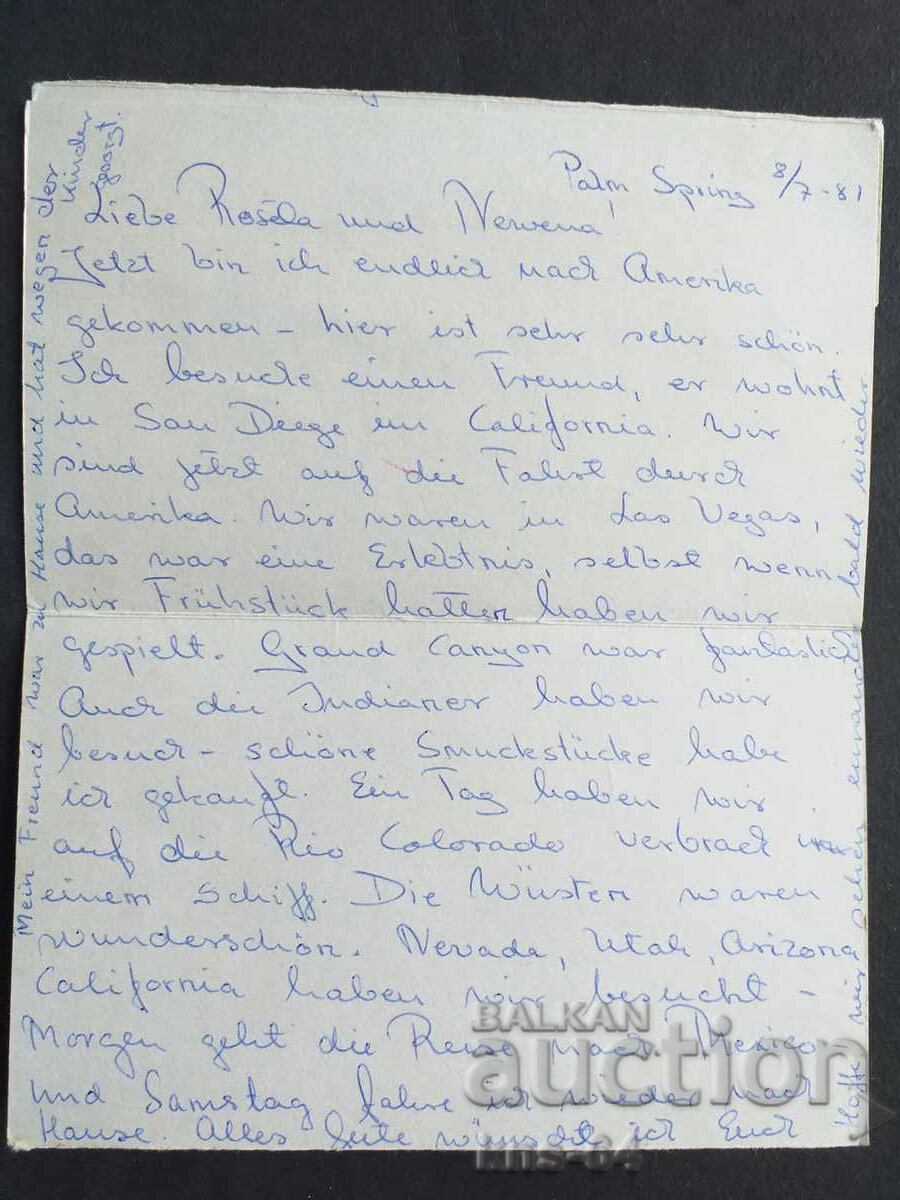 Palm Spring 8/7-81
Liebe Rošda und Newena!
Jetzt bin ich endlich nach Amerika
gekommen – hier ist sehr sehr schön.
Ich besuche einen Freund, er wohnt
in San Diege in California. Wir
sind jetzt auf die Fahrt durch
Amerika. Wir waren in Las Vegas,
das war eine Erlebtnis, selbst wenn
wir Frühstück hatten haben wir
gespielt. Grand Canyon war fantastich
Auch die Indianer haben wir
besuch – schöne Smuckstücke habe
ich gekauft. Ein Tag haben wir
auf die Rio Colorado verbrach in
einem Schiff. Die Wüsten waren
wunderschön. Nevada, Utah, Arizona
California haben wir besucht –
Morgen geht die Reise nach Mexico
und Samstag fahre ich wieder nach
Hause. Alles Gute wünscht ich Euch
Hoffe wir sehen einander bald wieder
Mein Freund war zu Hause und hat wegen der
Kinder
gesorgt.
BALKAN
auction
kns-64